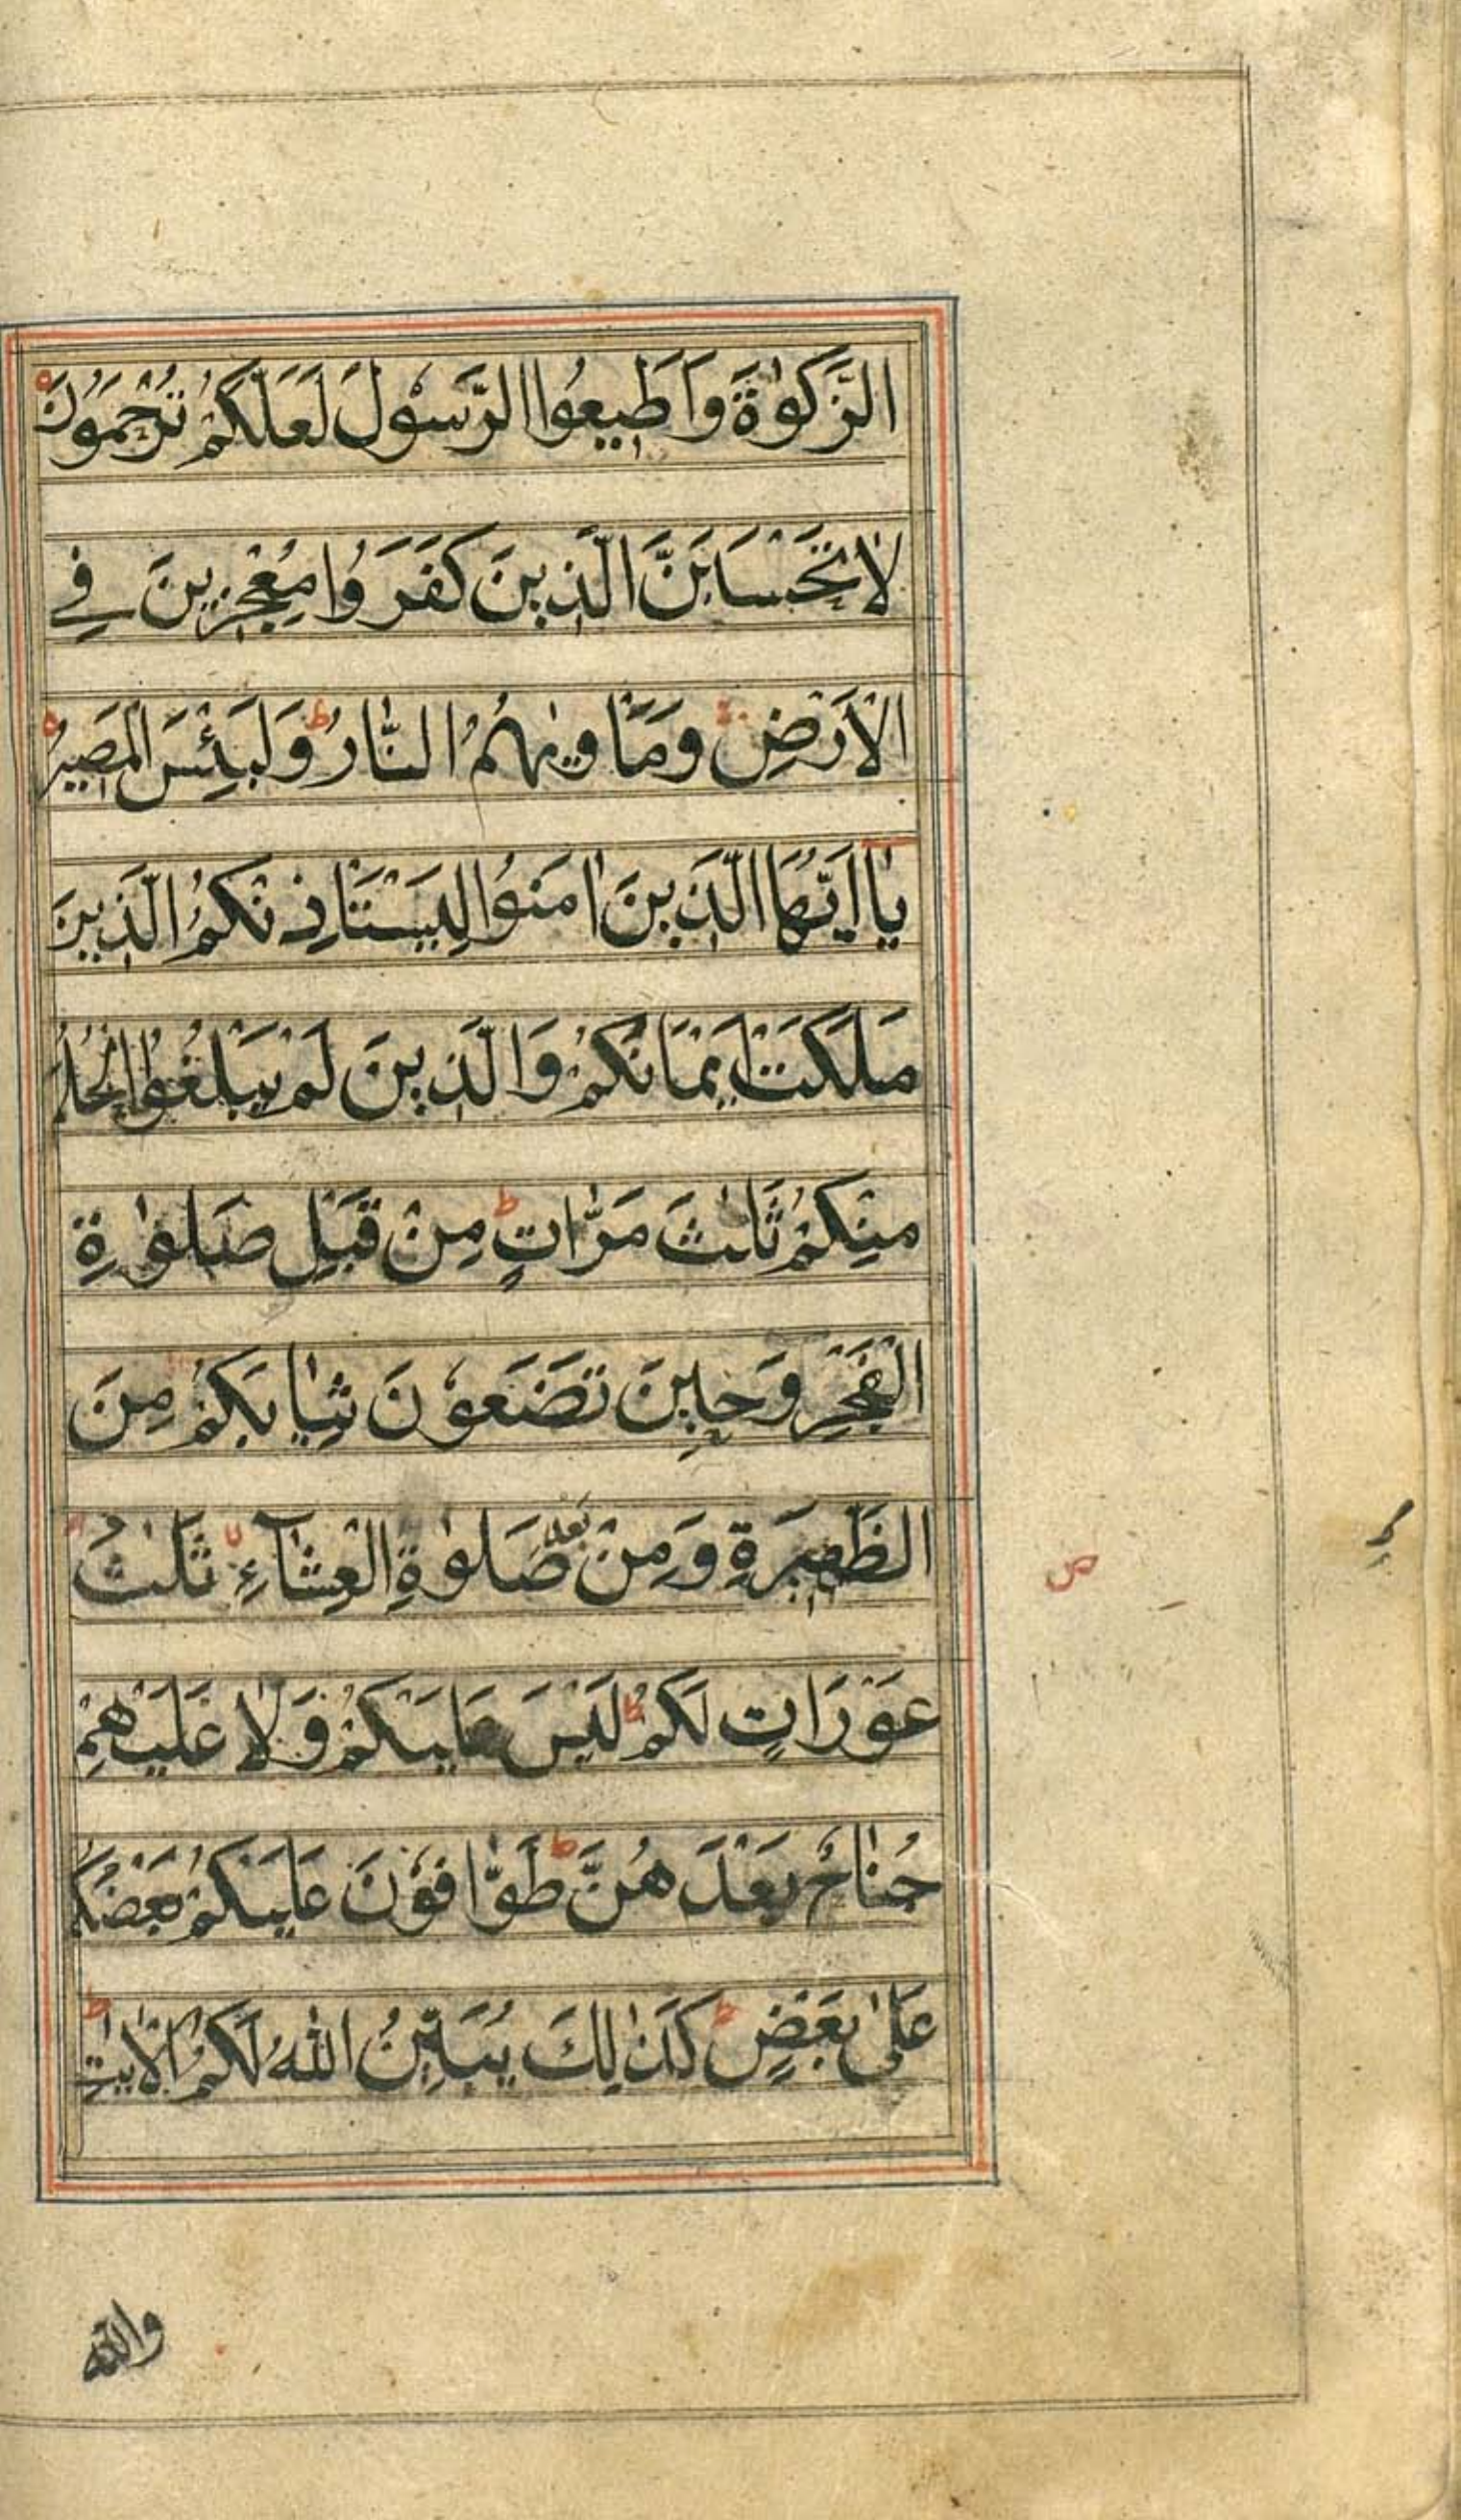 الزَّكَوٰةَ وَاَطِيعُوا الرَّسُوْلَ لَعَلَّكُمْ تُرْحَمُوْنَ
لَا تَحْسَبَنَّ الَّذِينَ كَفَرَوُا مُعْجِزِينَ فِي
الْاَرْضِ وَمَاْوٰيهُمُ النَّارُ ط وَلَبِئْسَ الْمَصِيرُ
يٰا اَيُّهَا الَّذِينَ اٰمَنُوا لِيَسْتَاْذِنْكُمُ الَّذِينَ
مَلَكَتْ اَيْمَانُكُمْ وَالَّذِينَ لَمْ يَبْلُغُوا الْحُلُمَ
مِنْكُمْ ثَلٰثَ مَرّٰاتٍ ط مِنْ قَبْلِ صَلٰوةِ
الْفَجْرِ وَحِينَ تَضَعُوْنَ ثِيٰابَكُمْ مِنَ
الظَّهِيرَةِ وَمِنْ بَعْدِ صَلٰوةِ الْعِشَآءِ ثَلٰثُ
عَوْرَاتٍ لَكُمْ ط لَيْسَ عَلَيْكُمْ وَلَا عَلَيْهِمْ
جُنٰاحٌ بَعْدَ هُنَّ ط طَوّٰافُوْنَ عَلَيْكُمْ بَعْضُكُمْ
عَلٰى بَعْضٍ ط كَذٰلِكَ يُبَيِّنُ اللهُ لَكُمُ الْاٰيٰتِ ط
ص
والله